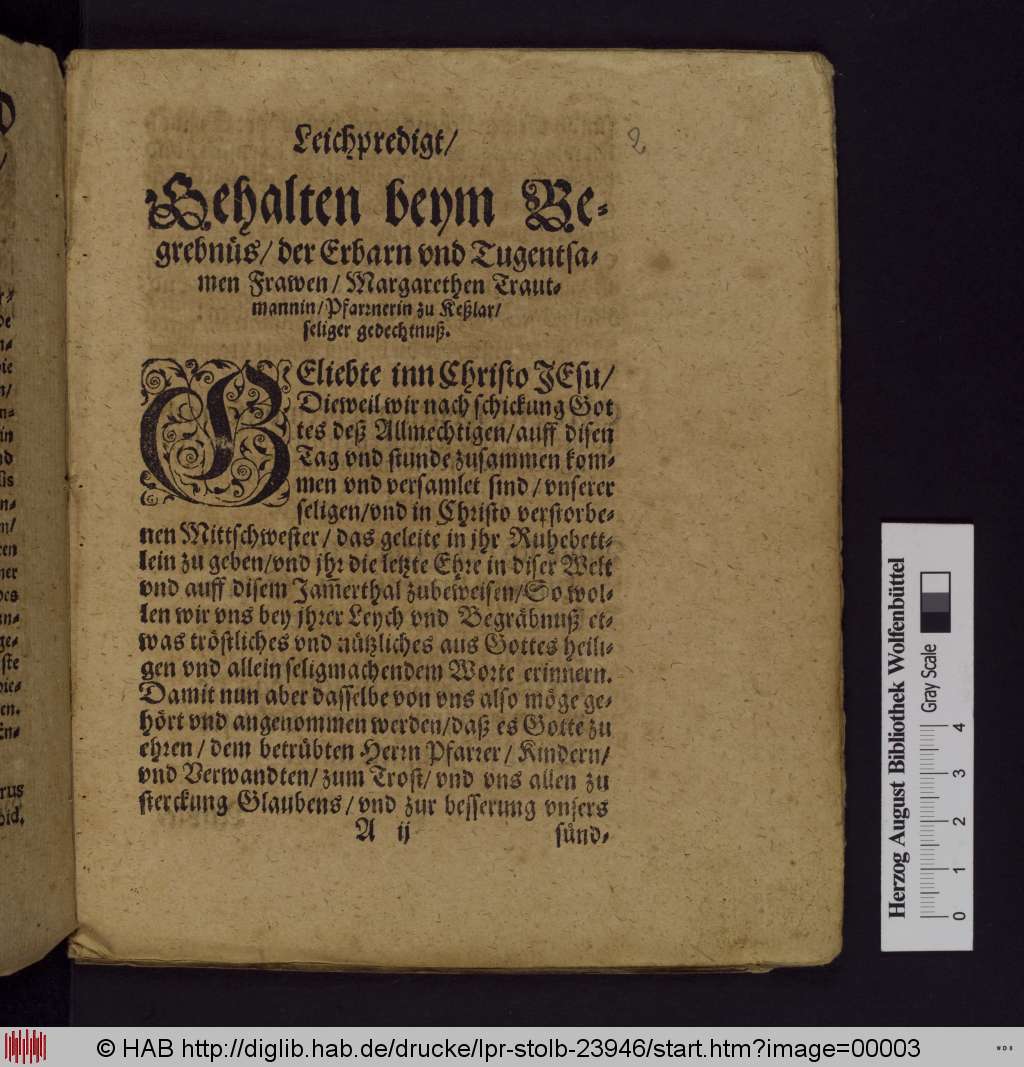 Leichpredigt/
2
Gehalten beym Be-
grebnüs/ der Erbarn vnd Tugentsa-
men Frawen/ Margarethen Traut-
mannin/ Pfarrnerin zu Keßlar/
seliger gedechtnuß.
GEliebte inn Christo JEsu/
Dieweil wir nach schickung Got
tes deß Allmechtigen/ auff disen
Tag vnd stunde zusammen kom-
men vnd versamlet sind/ vnserer
seligen/ vnd in Christo verstorbe-
nen Mittschwester/ das geleite in jhr Ruhebett-
lein zu geben/ vnd jhr die letzte Ehre in diser Welt
vnd auff disem Jam̄erthal zubeweisen/ So wol-
len wir vns bey jhrer Leych vnd Begräbnuß et-
was tröstliches vnd nützliches aus Gottes heili-
gen vnd allein seligmachendem Worte erinnern.
Damit nun aber dasselbe von vns also möge ge-
hört vnd angenommen werden/ daß es Gotte zu
ehren/ dem betrübten Herrn Pfarrer/ Kindern/
vnd Verwandten/ zum Trost/ vnd vns allen zu
sterckung Glaubens/ vnd zur besserung vnsers
A ij
sünd-
Herzog August Bibliothek Wolfenbüttel
Gray Scale
0 1 2 3 4
© HAB http://diglib.hab.de/drucke/lpr-stolb-23946/start.htm?image=00003